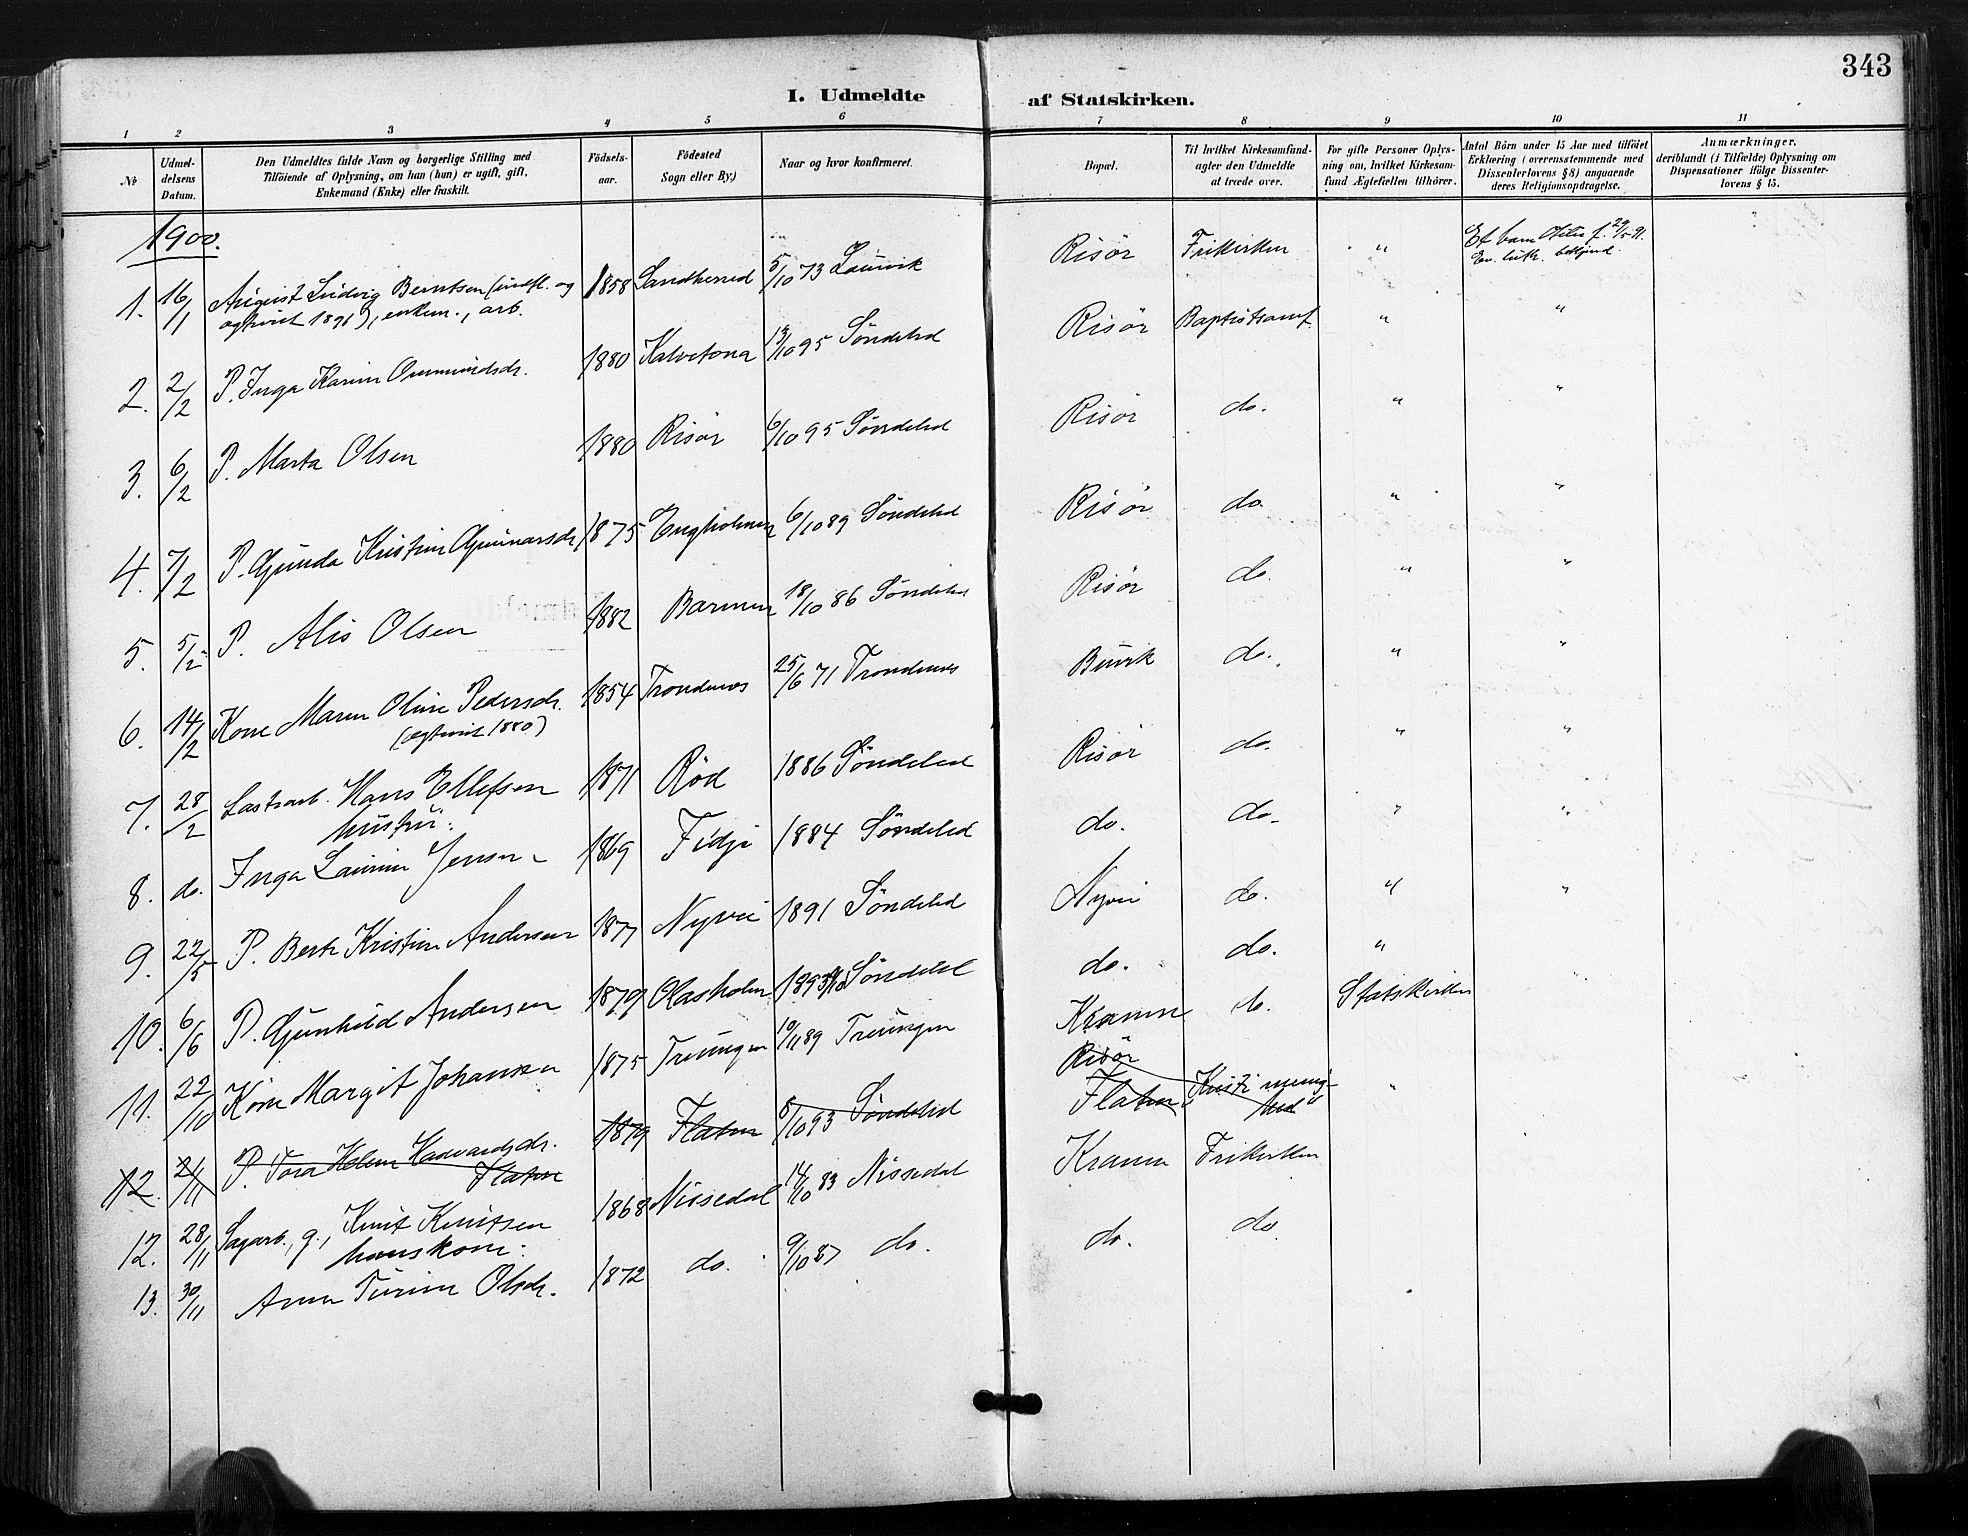 343
I. Udmeldte af Statskirken.
1 2 3 4 5 6 7 8 9 10 11
№
Udmel-
delsens
Datum.
Den Udmeldtes fulde Navn og borgerlige Stilling med
Tilföiende af Oplysning, om han (hun) er ugift, gift,
Enkemand (Enke) eller fraskilt.
Födsels-
aar.
Födested
Sogn eller By.)
Naar og hvor konfirmeret.
Bopæl.
Til hvilket Kirkesamfund-
agter den Udmeldte
at træde over.
For gifte Personer Oplys-
ning om, hvilket Kirkesam-
fund Ægtefællen tilhörer.
Antal Börn under 15 Aar med tilföiet
Erklæring (overensstemmende med
Dissenterlovens § 8) angaaende
deres Religionsopdragelse.
Anmærkninger,
deriblandt (i Tilfælde) Oplysning om
Dispensationer ifölge Dissenter-
lovens § 15.
1900.
1. 16/11 August Ludvig Berntsen (indfl. og 1858 Sandherred 5/10 73 Laurvik Risör Frikirken " Et barn f. 29/5 91.
1896), enkem., arb. Ev. luth.
2. 2/2 P. Inga Karin 1880 95 Söndeled Risör Baptistsamf. " "
3. 6/2 P. Marta Olsen 1880 Risör 6/10 95 Söndeled Risör do. " "
4. 7/2 P. Gunda Kristine Gunnarsdr. 1875 6/10 89 Söndeled Risör do. " "
5. 5/2 P. Alis Olsen 1882 Barmen 18/10 86 Söndeled Risör do. " "
6. 14/2 Kone Maren Oline Pedersdr. 1854 Trondenes 25/6 71 Trondenes Buvik do. " "
7. 28/2 Lastearb. Hans Ellefsen 1871 Röd 1886 Söndeled Risör do. " "
hustru:
8. do. Inga Jensen 1869 Fidje 1884 Söndeled do. do. " "
9. 22/5 P. Berte Kristine Andersen 1877 Nyvei 1891 Söndeled Nyvei do. " "
10. 6/6 P. Gunhild Andersen 1879 Olasholm 1893 Söndeled do. do. "
11. 22/10 Kone Margit Johansen 1875 Treungen 89 Treungen Kranen do. Statskirken
Risör
12. 21/11 P. Tora Helene Havardsdr. 1879 Flaten 8/10 93 Söndeled Flaten "Kristi menig- "
Flaten hed"
12. 28/11 Sagarb., g., Knut Knutsen 1868 Nissedal 14/10 83 Nissedal Kranen Frikirken
hans kone:
13. 30/11 Anne Olsdr. 1872 do. 9/10 87 do. do. do